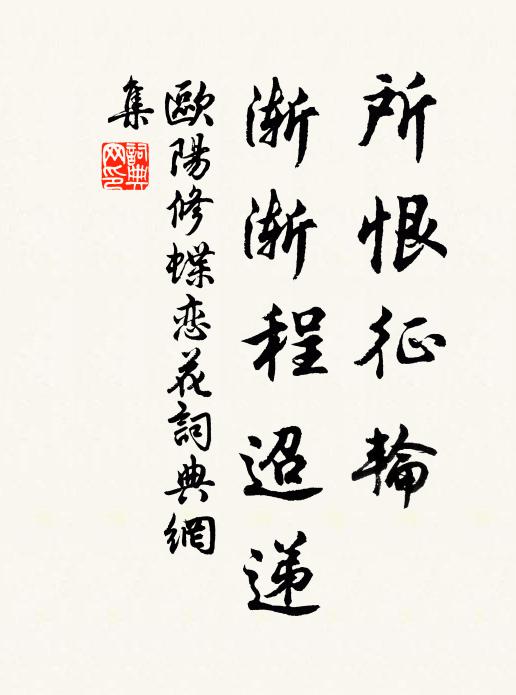 所恨征輪
漸漸程迢递
歐陽修蝶恋花詞典網
集
詞典
网印